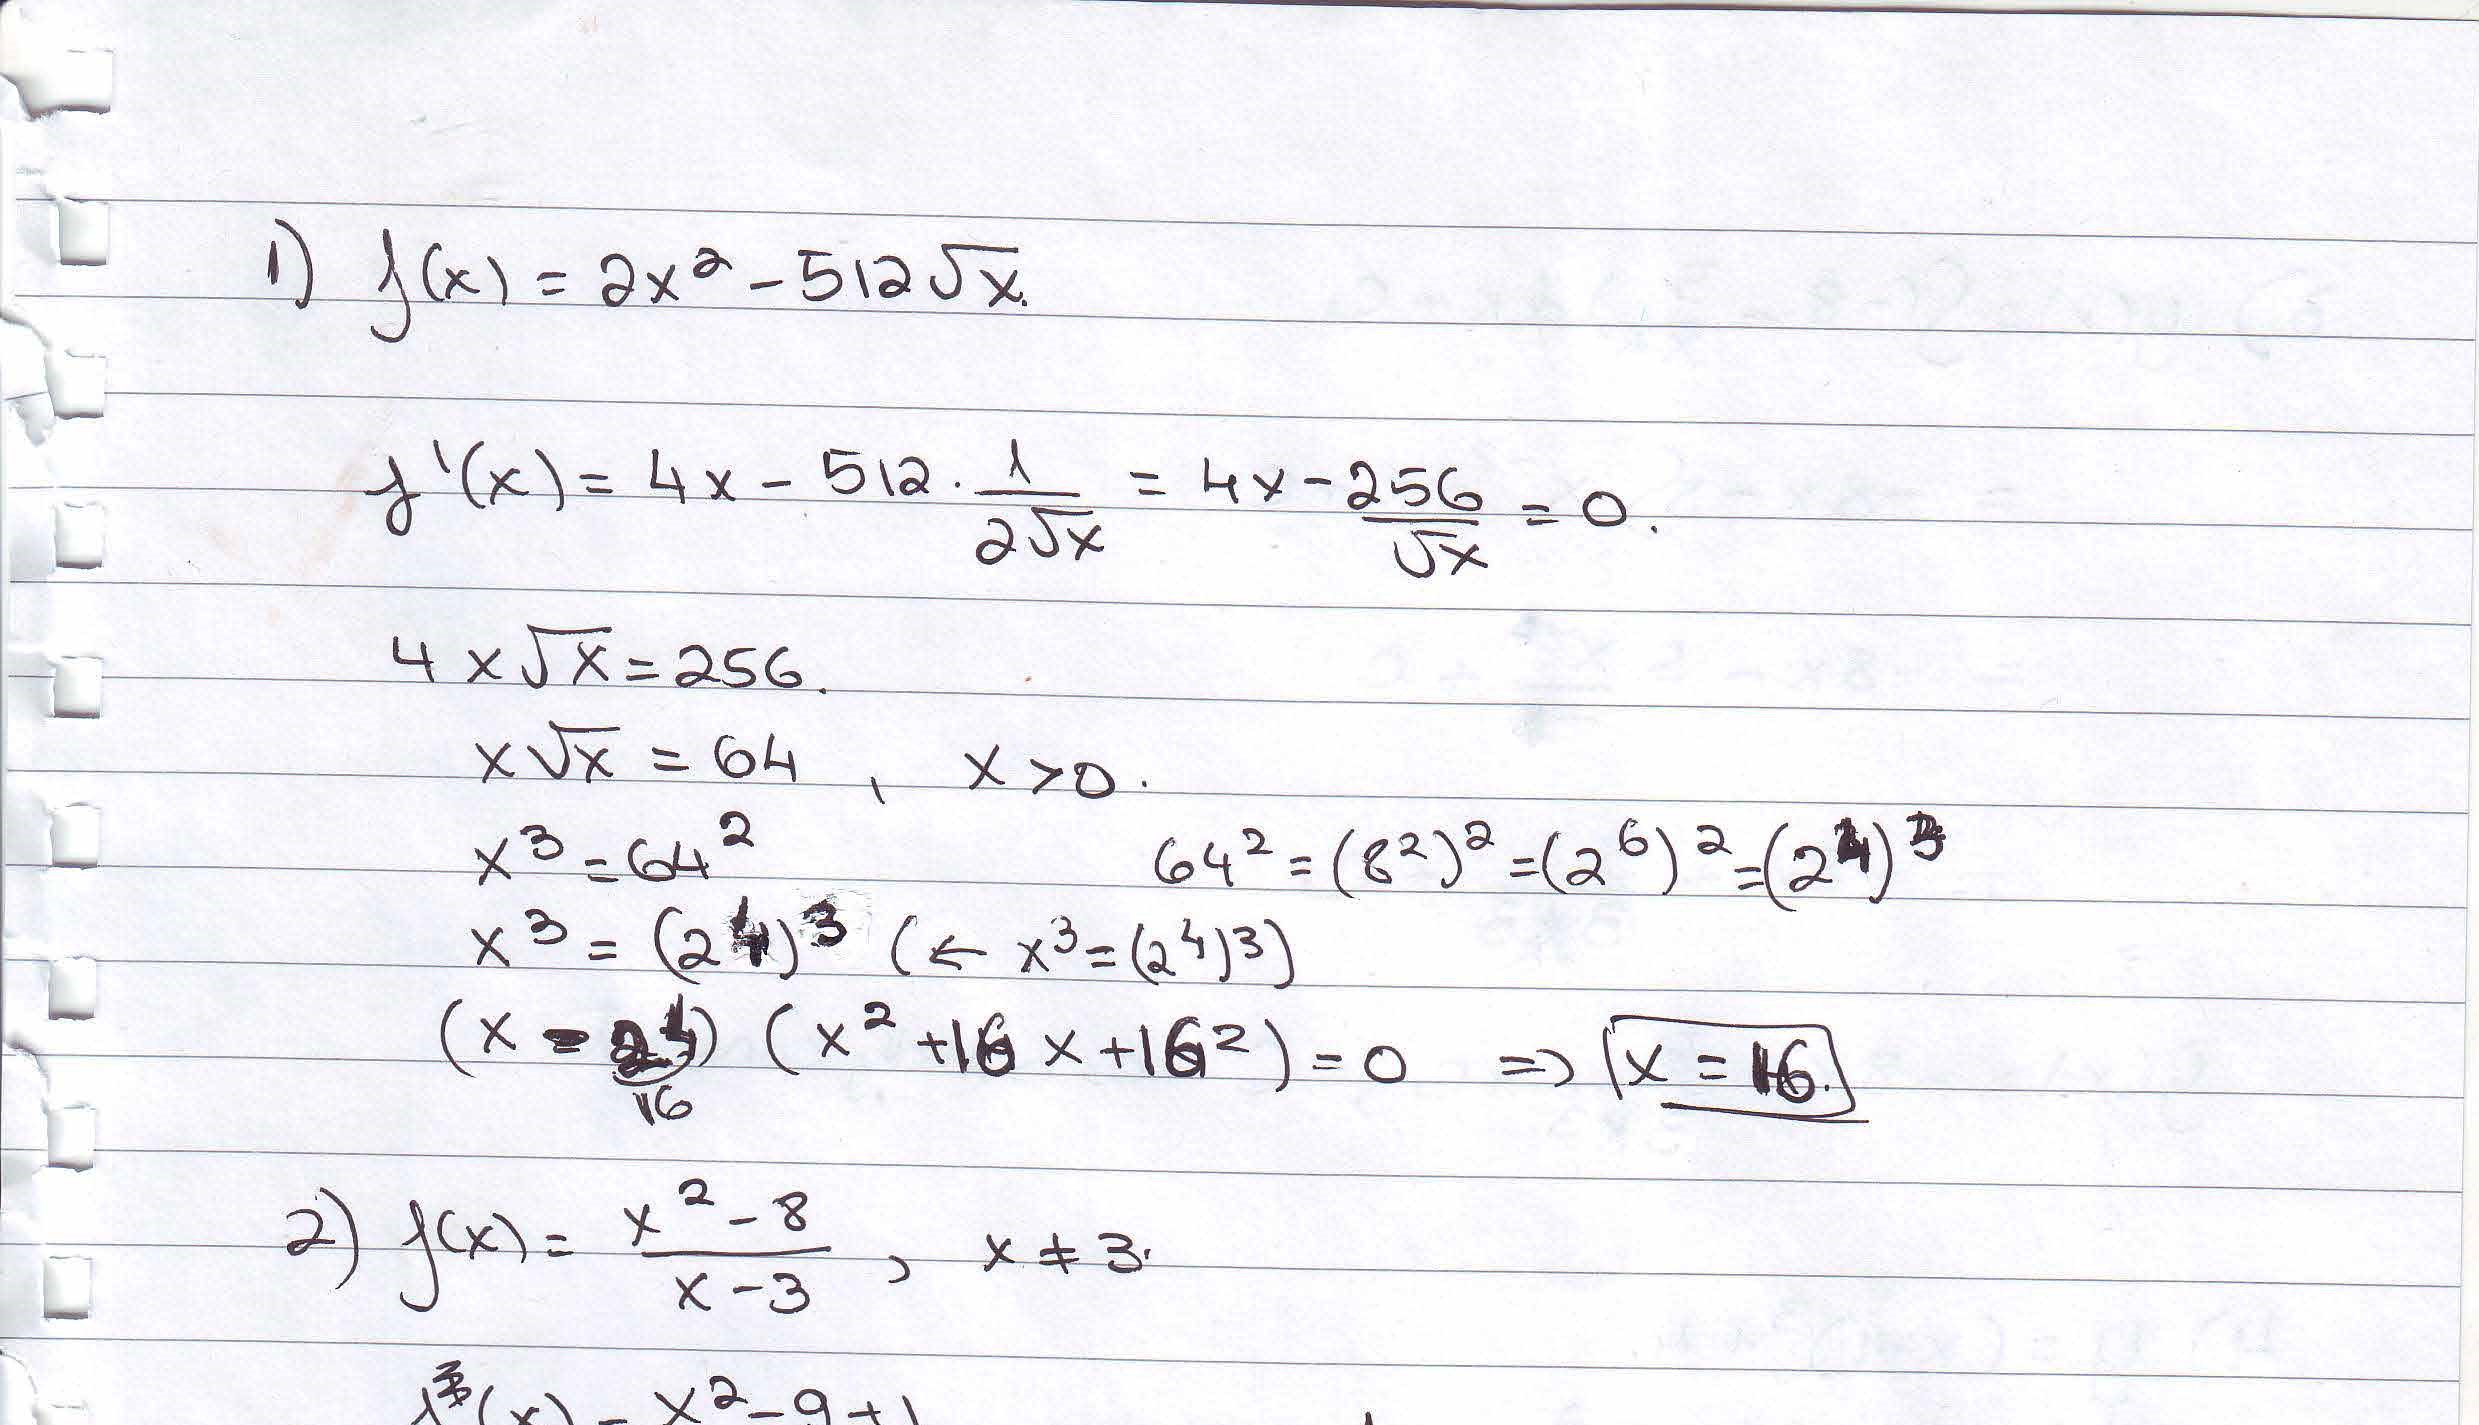 1) f(x) = 2x² - 512√x.
f'(x) = 4x - 512 · 1/(2√x) = 4x - 256/√x = 0.
4x√x = 256.
x√x = 64 , x > 0.
x³ = 64² 64² = (8²)² = (2⁶)² = (2⁴)³
x³ = (2⁴)³ (← x³ = (2⁴)³)
(x - 2⁴) (x² + 16x + 16²) = 0 ⇒ x = 16.
16
2) f(x) = (x² - 8)/(x - 3) , x ≠ 3.
(x) = x² - 9 + 1